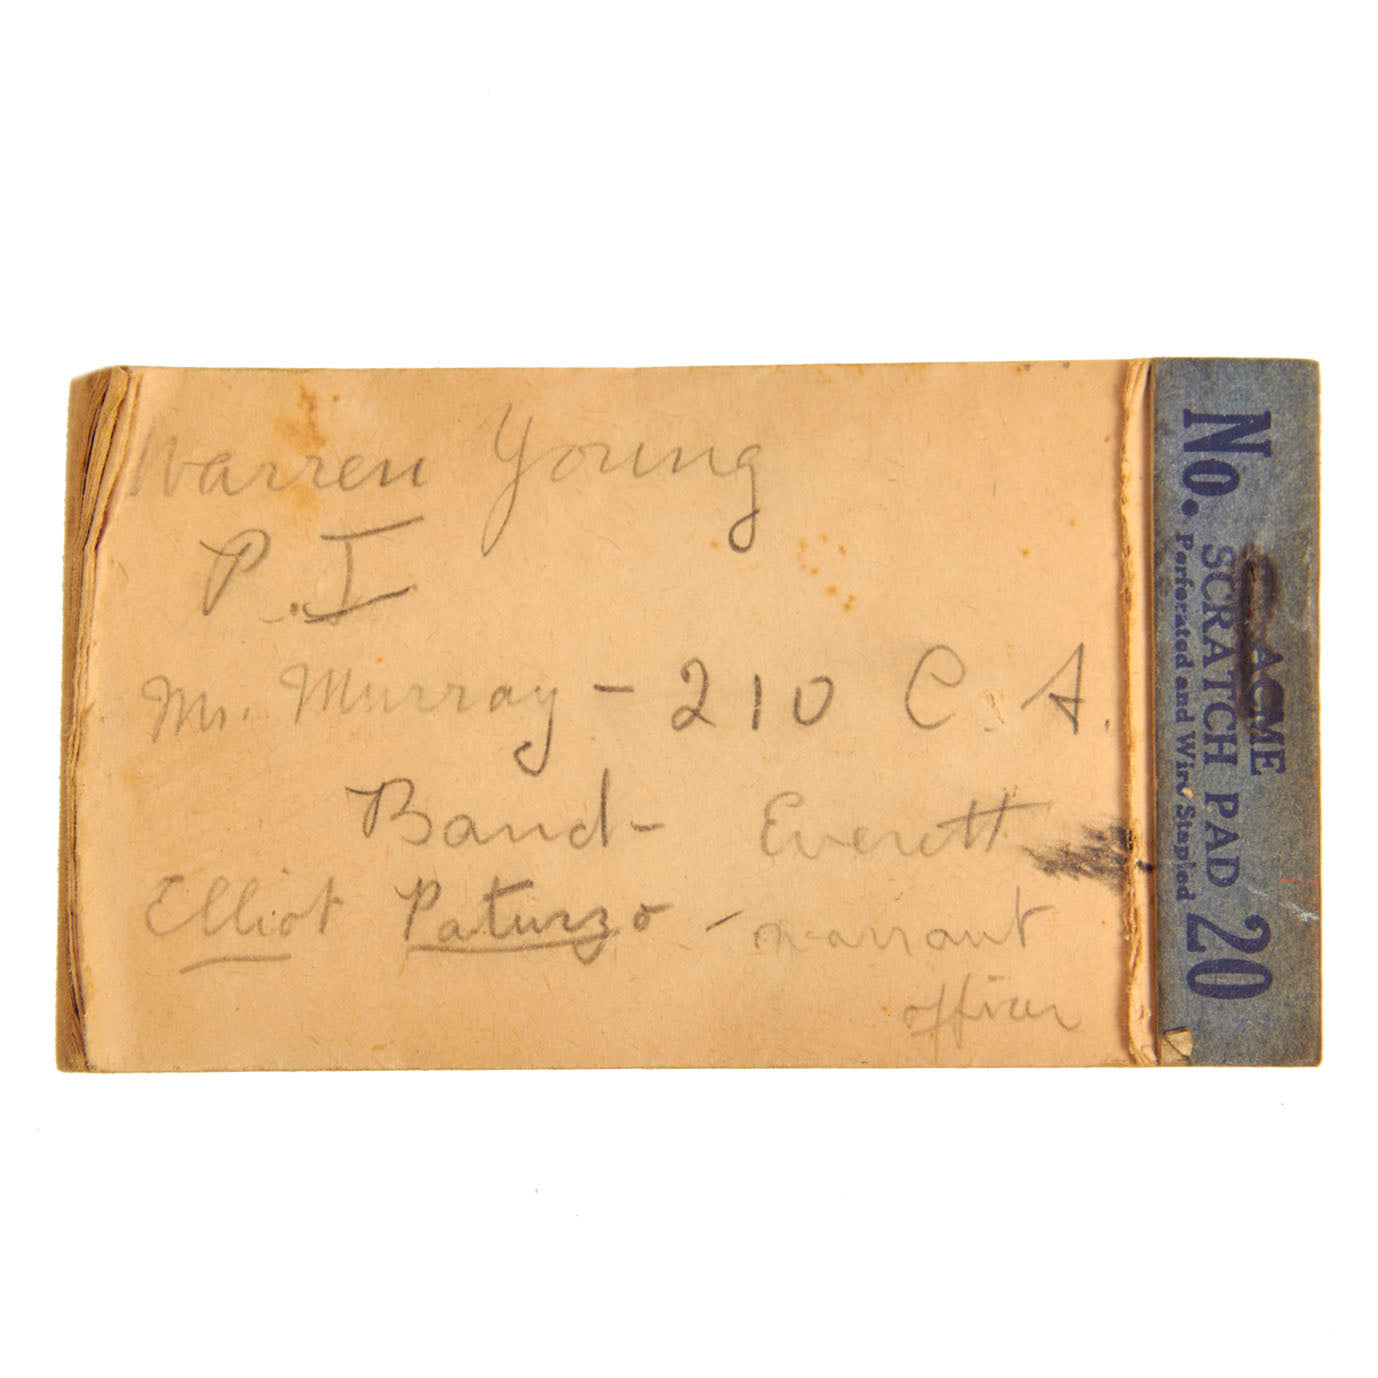 Warren Young
P. I
Mr. Murray - 210 C. A.
Band - Everett
Elliot Paturzo - warrant
officer
ACME
No. SCRATCH PAD 20
Perforated and Wire Stapled